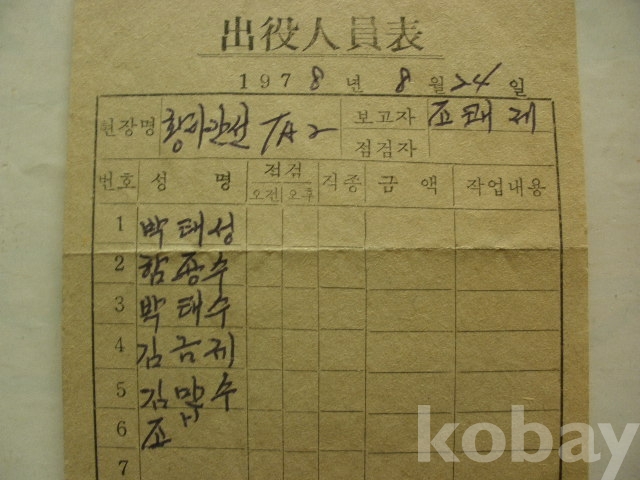 出役人員表
1978년 8월 24일
현장명 황지관선 TA2 보고자 조쾌제
점검자
번호 성 명 점검 직종 금 액 작업내용
오전 오후
1 박태성
2 함종수
3 박태수
4 김금제
5 김만수
6 조
7
kobay